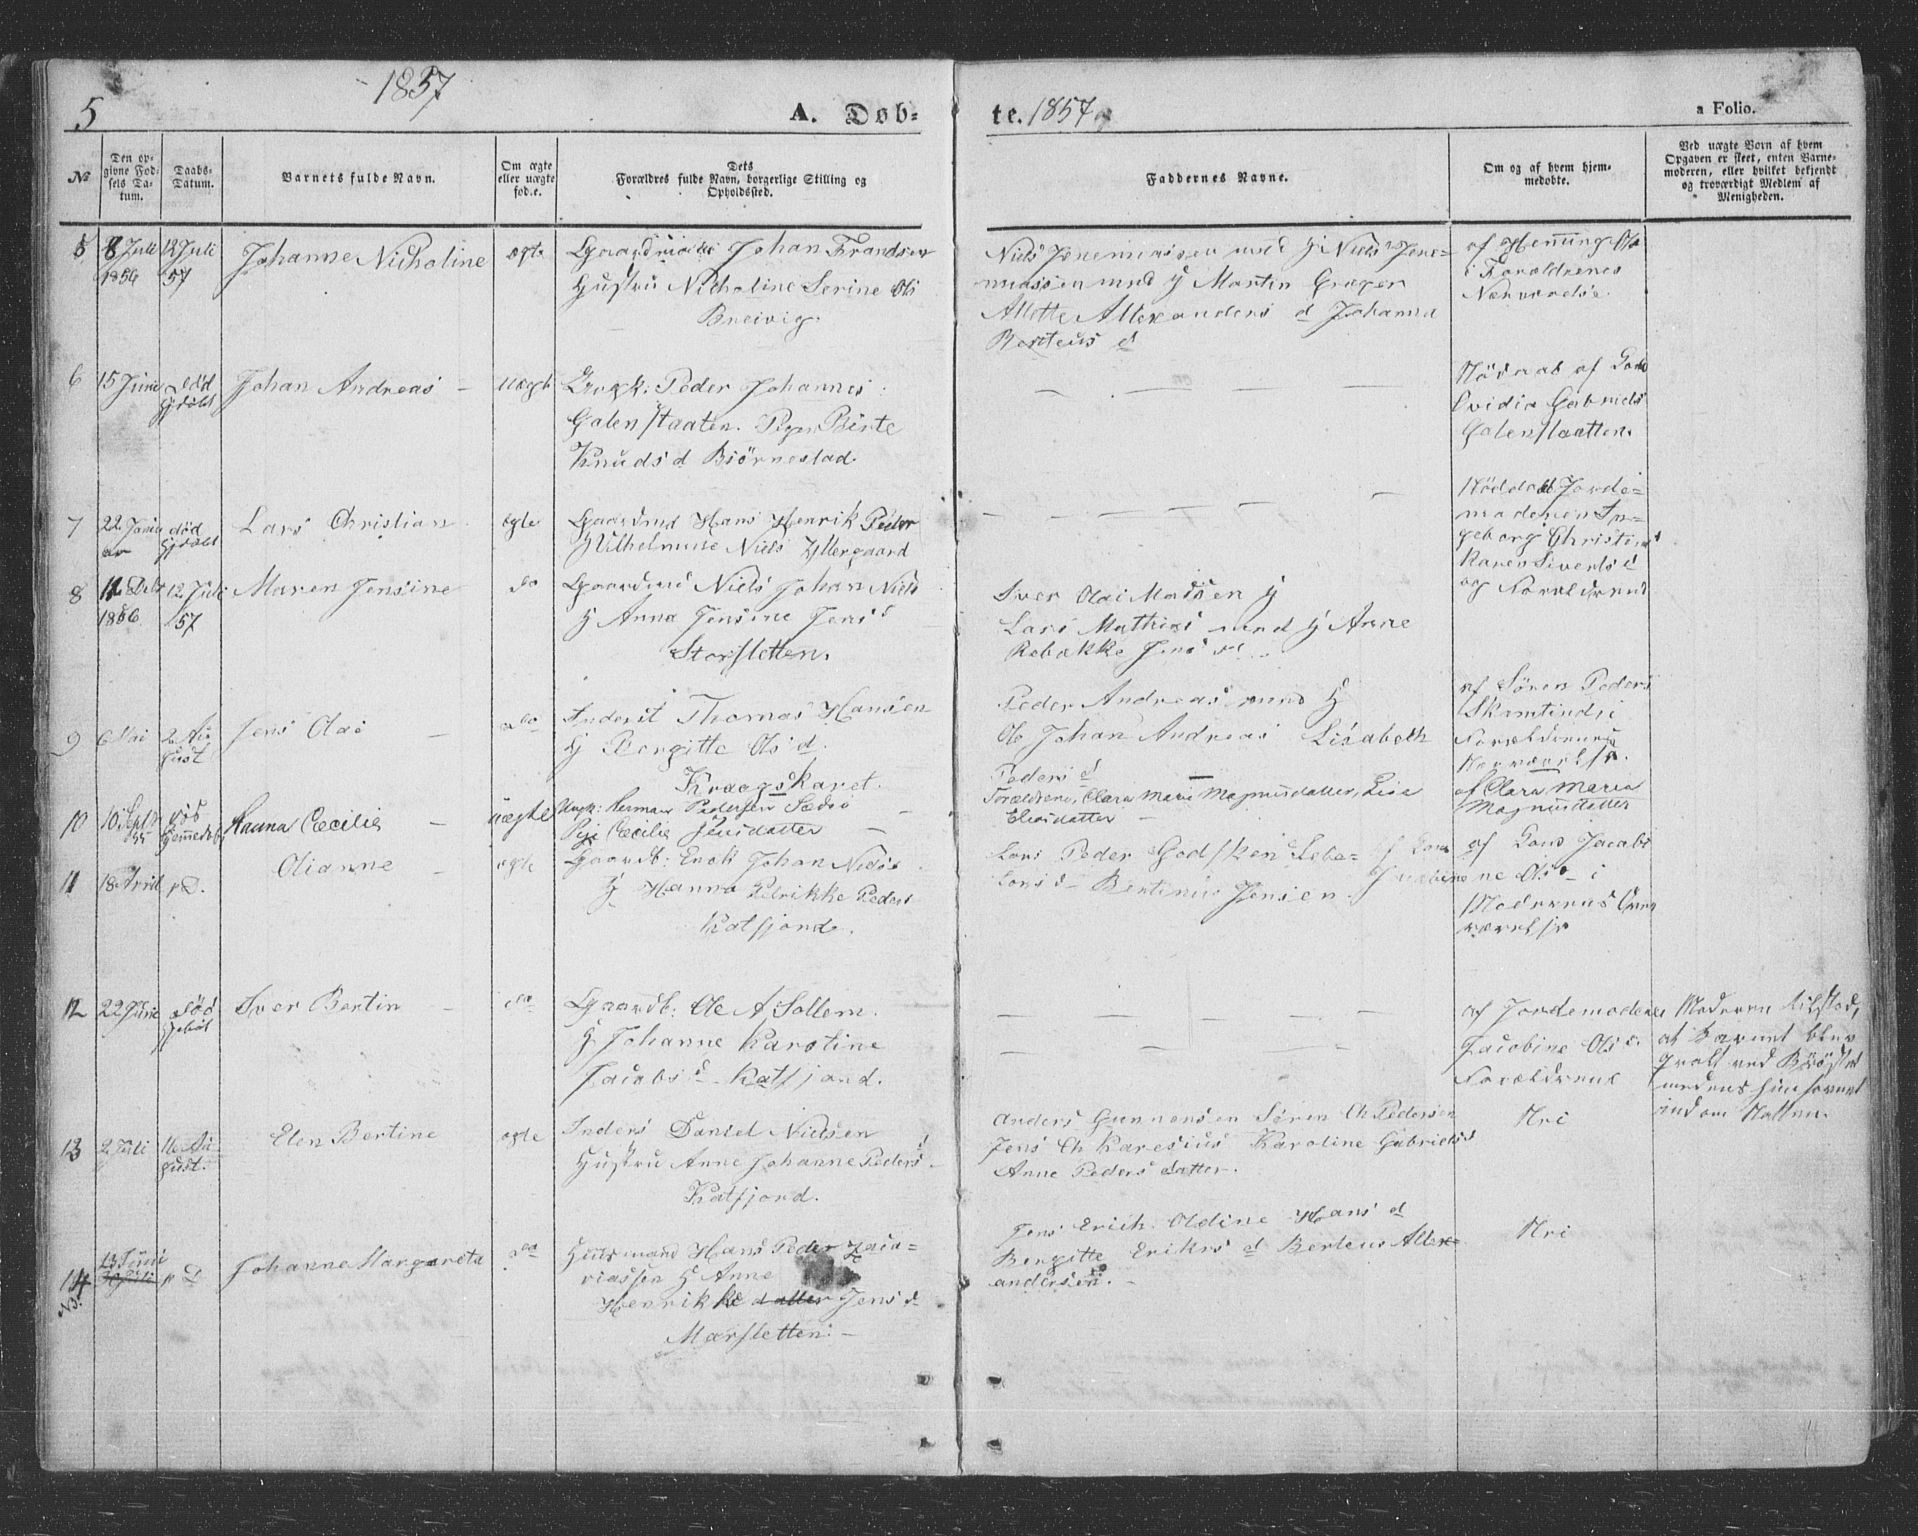 5
1857
A. Døb-
te. 1857
a Folio.
No
Den op-
givne Fød-
sels Da-
tum.
Daabs-
Datum.
Barnets fulde Navn.
Om ægte
eller uægte
fød.e.
Dets
Forældres fulde Navn, borgerlige Stilling og
Opholdssted.
Faddernes Navne.
Om og af hvem hjem-
medøbte.
Ved uægte Børn af hvem
Opgaven er skeet, enten Barne-
moderen, eller hvilket bekjendt
og troværdigt Medlem af
Menigheden.
5
8 Juli
1856
12 Juli
57
Johanne Nicholine
ægte
Johan Frandsen
Hustru Nicholine Serine Ols
Breivig.
Niels Jeremiassen med H Niels Jere-
miassen med H Martin Greger
Allette Allexanders d Johanna
Berteus d
af Henning
i Forældrenes
Nærværelse.
6
15 Juni
død
Johan Andreas -
uægte
Peder Johannes
Galenstaaten. Pigen Birte
Knuds d Biørnestad
af
Ovidia Gabriels
Galenstaatten.
7
22 Junii
død
Lars Christian
ægte
Gaardmd Hans Henrik Peder
H Vilhelmine Niels Yttergaard
Jorde-
moderen In-
geborg Christine
Karen Siverts d
og Forældrene
8
11 Debr
1856
12 Juli
57
Maren Jensine
do
Gaardmd Niels Johan Niels
H Anna Jensine Jens d
Storsletten.
Iver Olai Madsen H
Lars Mathias med H Anne
Rebække Jens d
9
6 Mai
2 Au
gust
Jens Olai -
do
Inderst Thomas Hansen
H Bergitte Ols d.
Kraagskaret.
Peder Andreas med H
Ole Johan Andreas Lisabeth
Peders d
af Sören Peders
Skamtind i
Forældrenes
Nærværelse.
10
10 Septr
55
Hanna Cæcilie -
uægte
Herman Pedersen
Pige Cæcilie Jensdatter -
Forældrene, Clara Marie Magnusdatter, Lisa
Eliasdatter -
af Clara Maria
Magnusdatter
11
18 April
s D.
Olianne -
ægte
Gaardb: Enok Johan Niels
H Hanna Petrikke Peders
Katfjord.
Lars Peder Godsken
Lars d- Bertinus Jensen.
af
ne Ols d- i
Moderens Nær
værelse
12
22 Junie
død
Iver Bertin -
do
Gaardb: Ole A Sollem.
H Johanne Karoline
Jacobs d Katfjord.
af Jordemoderen
Jacobine Ols d.
Forældrene
Moderen tilstod,
at Barnet blev
qvalt ved Brÿstet
medens hun sovnet
ind om Natten.
13
2 Juli
16 Au-
gust.
Elen Bertine
ægte
Inders Daniel Nielsen
Hustru Anne Johanne Peders d.
Katfjord.
Anders Gunnersen Sören Ch Pedersen
Jens Ch Karesius Karoline Gabriels d
Anne Peders datter.
Nei
14
13 Junii
s D
Johanne Margareta
do
Huusmand Hans Peder Zaca-
riassen H Anne
Henrikke datter Jens d-
Marsletten. -
Jens Erich Oldine Hans d
Bergitte Eriks d Berteus Allex-
andersen. -
Nei